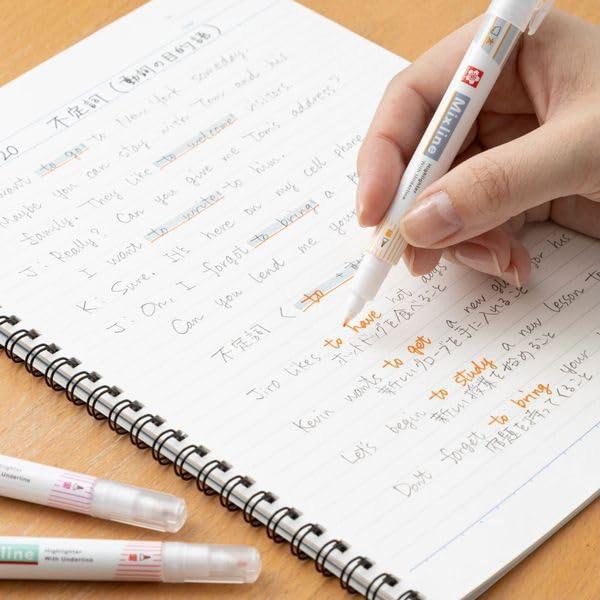 20 不定詞(動詞の目的語)
want to go to New York someday.
Maybe you can stay with Tom and his
family. They like to welcome visitors.
J: Really? Can you give me Tom's address?
I want to write to him.
K: Sure. It's here on my cell phone
J: Oh, I forgot to bring a
Can you lend me you
不定詞 < to +
Jiro likes to have hot dogs
ホットドッグを食べること
Kevin wants to get a new glove for his
新しいグローブを手に入れること
Let's begin to study a new lesson to
新しい授業を始めること
Don't forget to bring your
宿題を持ってくること
Mixline
Highlighter
With Underline
line
Highlighter
With Underline
Highlighter
With Underline